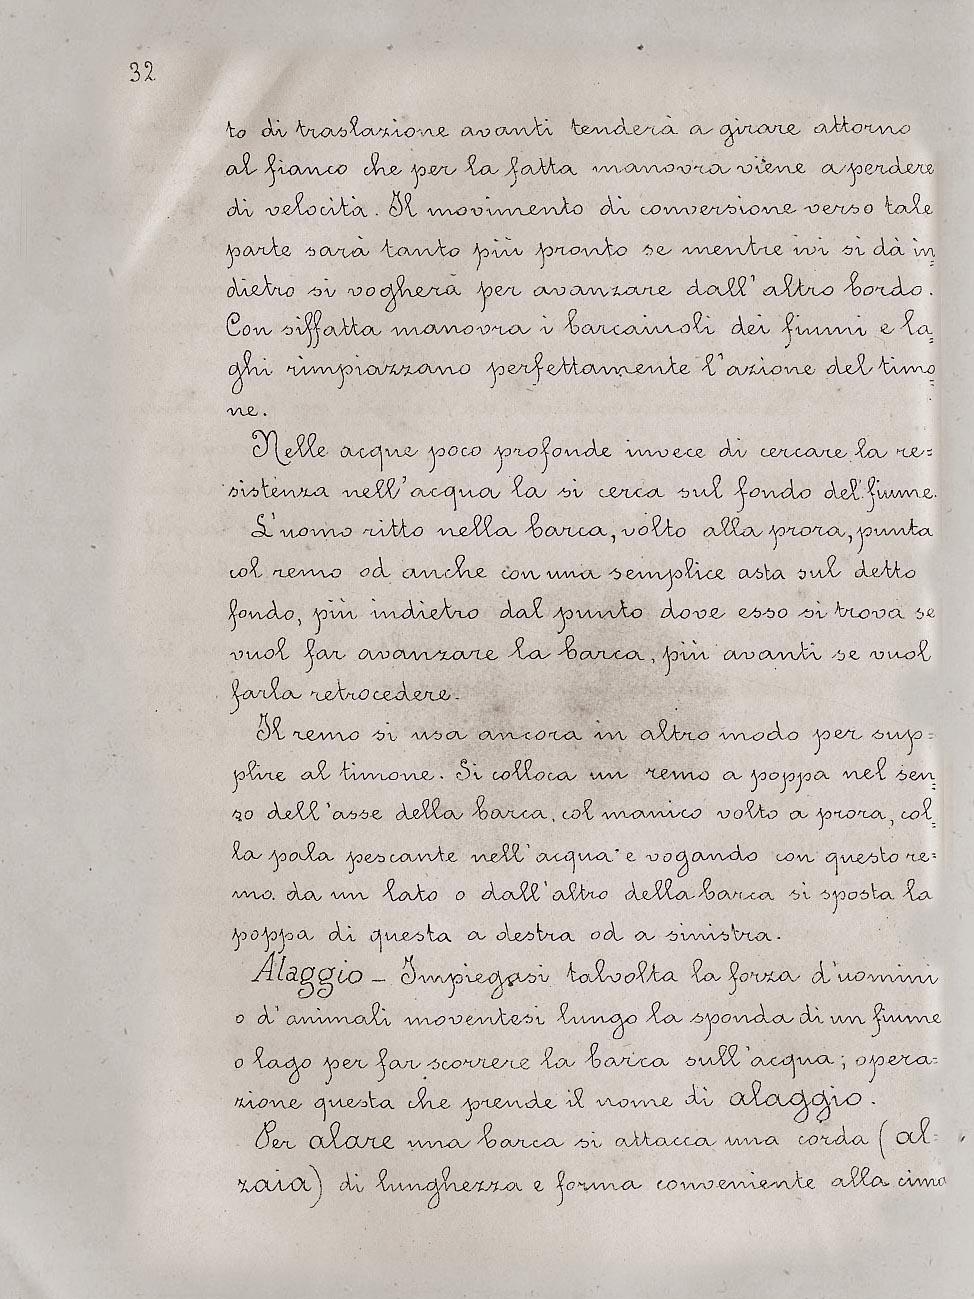 32
to di traslazione avanti tenderà a girare attorno
al fianco che per la fatta manovra viene a perdere
di velocità. Il movimento di conversione verso tale
parte sarà tanto più pronto se mentre ivi si dà in=
dietro si vogherà per avanzare dall'altro bordo.
Con siffatta manovra i barcaiuoli dei fiumi e la=
ghi rimpiazzano perfettamente l'azione del timo=
ne.
Nelle acque poco profonde invece di cercare la re=
sistenza nell'acqua la si cerca sul fondo del fiume.
L'uomo ritto nella barca, volto alla prora, punta
col remo od anche con una semplice asta sul detto
fondo, più indietro dal punto dove esso si trova se
vuol far avanzare la barca, più avanti se vuol
farla retrocedere.
Il remo si usa ancora in altro modo per sup=
plire al timone. Si colloca un remo a poppa nel sen=
so dell'asse della barca, col manico volto a prora, col=
la pala pescante nell'acqua e vogando con questo re=
mo da un lato o dall'altro della barca si sposta la
poppa di questa a destra od a sinistra.
Alaggio - Impiegasi talvolta la forza d'uomini
o d'animali moventesi lungo la sponda di un fiume
o lago per far scorrere la barca sull'acqua; opera=
zione questa che prende il nome di alaggio.
Per alare una barca si attacca una corda (al=
zaia) di lunghezza e forma conveniente alla cima